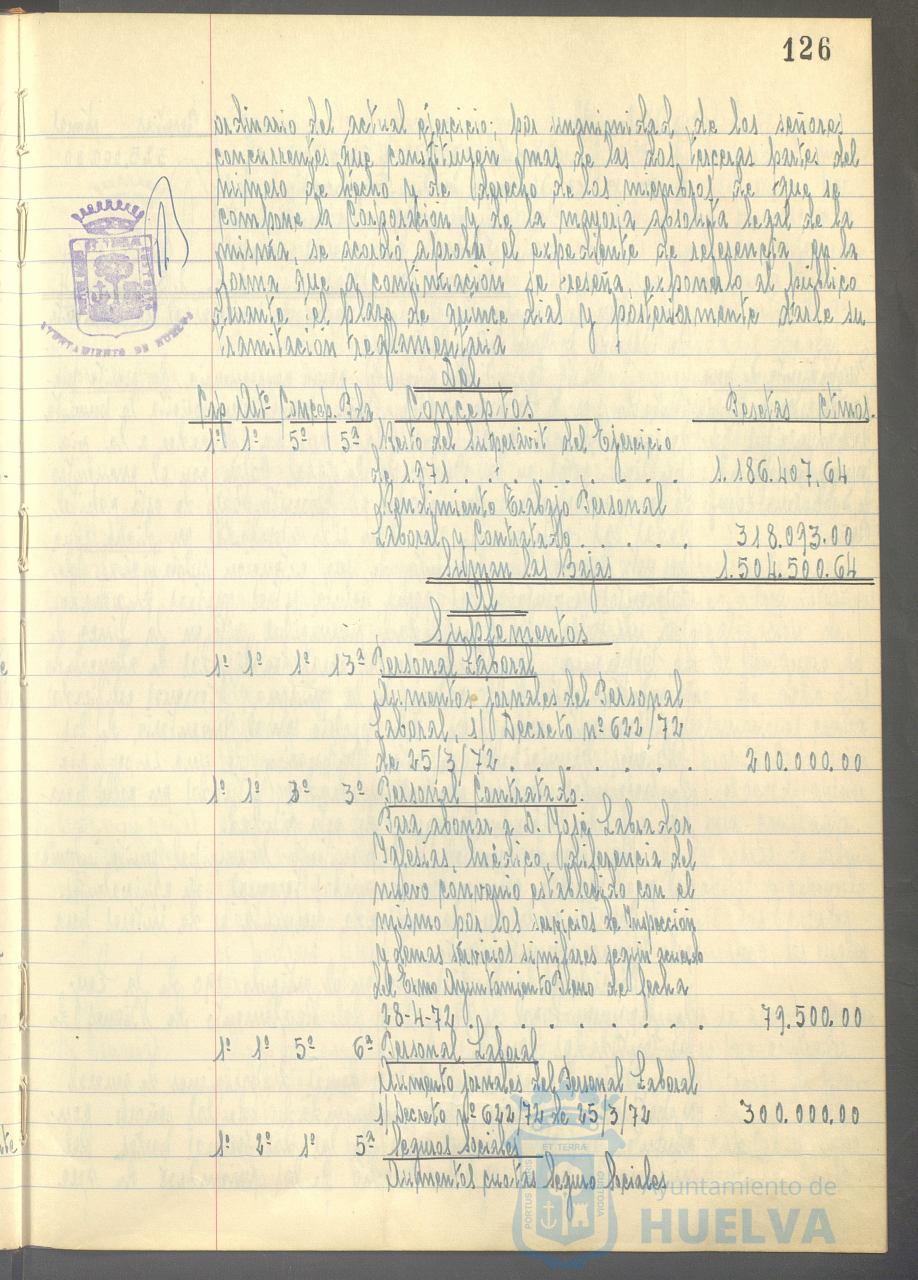 126
ordinario del actual ejercicio; por unanimidad, de los señores
concurrentes que constituyen mas de las dos terceras partes del
número de hecho y de derecho de los miembros de que se
compone la Corporación y de la mayoría absoluta legal de la
misma, se acordó aprobar el expediente de referencia en la
forma que a continuación se reseña, exponerlo al público
durante el plazo de quince días y posteriormente darle su
tramitación reglamentaria
Del
Cap Artº Concep. Pda Conceptos Pesetas Ctmos.
1º 1º 5º 5ª Resto del Superávit del Ejercicio
de 1.971 . . . . . . . . 1.186.407,64
Rendimiento Trabajo Personal
Laboral y Contratado . . . . . 318.093.00
Suman las Bajas 1.504.500.64
Al
Suplementos
1º 1º 1º 13ª Personal Laboral
Aumentos jornales del Personal
Laboral, s/ Decreto nº 622/72
de 25/3/72 . . . . . . . 200.000.00
1º 1º 3º 3º Personal Contratado.
Para abonar a D. José Labrador
Iglesias, Médico, diferencia del
nuevo convenio establecido con el
mismo por los servicios de Inspección
y demas servicios similares según acuerdo
del Excmo Ayuntamiento Pleno de fecha
28-4-72 . . . . . . . . 79.500.00
1º 1º 5º 6ª Personal Laboral
Aumento jornales del Personal Laboral
s/ Decreto nº 622/72 de 25/3/72 300.000.00
1º 2º 1º 5ª Seguros Sociales
Aumentos cuotas Seguros Sociales
AYUNTAMIENTO DE HUELVA
ET TERRÆ
PORTUS MARIS
CUSTODIA
Ayuntamiento de
HUELVA